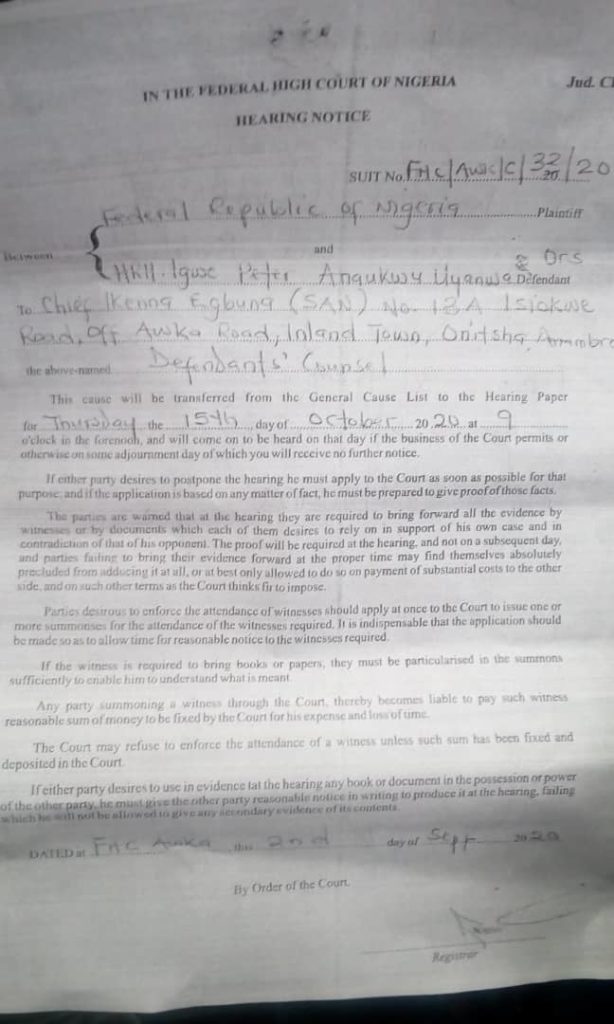 IN THE FEDERAL HIGH COURT OF NIGERIA
Jud. C
HEARING NOTICE
SUIT No. FHC/Awk/C/32/20
Federal Republic of Nigeria Plaintiff
Between
and
HRH. Igwe Peter Uyanwa & Ors Defendant
To Chief Ikenna Egbuna (SAN) No. 18A Isiokwe
Road, Off Awka Road, Inland Town, Onitsha Anambra
the above-named Defendants' Counsel
This cause will be transferred from the General Cause List to the Hearing Paper
for Thursday the 15th day of October 2020 at 9
o'clock in the forenoon, and will come on to be heard on that day if the business of the Court permits or
otherwise on some adjournment day of which you will receive no further notice.
If either party desires to postpone the hearing he must apply to the Court as soon as possible for that
purpose, and if the application is based on any matter of fact, he must be prepared to give proof of those facts.
The parties are warned that at the hearing they are required to bring forward all the evidence by
witnesses or by documents which each of them desires to rely on in support of his own case and in
contradiction of that of his opponent. The proof will be required at the hearing, and not on a subsequent day,
and parties failing to bring their evidence forward at the proper time may find themselves absolutely
precluded from adducing it at all, or at best only allowed to do so on payment of substantial costs to the other
side, and on such other terms as the Court thinks fir to impose.
Parties desirous to enforce the attendance of witnesses should apply at once to the Court to issue one or
more summonses for the attendance of the witnesses required. It is indispensable that the application should
be made so as to allow time for reasonable notice to the witnesses required.
If the witness is required to bring books or papers, they must be particularised in the summons
sufficiently to enable him to understand what is meant.
Any party summoning a witness through the Court, thereby becomes liable to pay such witness
reasonable sum of money to be fixed by the Court for his expense and loss of time.
The Court may refuse to enforce the attendance of a witness unless such sum has been fixed and
deposited in the Court.
If either party desires to use in evidence tat the hearing any book or document in the possession or power
of the other party, he must give the other party reasonable notice in writing to produce it at the hearing, failing
which he will not be allowed to give any secondary evidence of its contents.
DATED at FHC Awka this 2nd day of Sept 2020
By Order of the Court.
Registrar